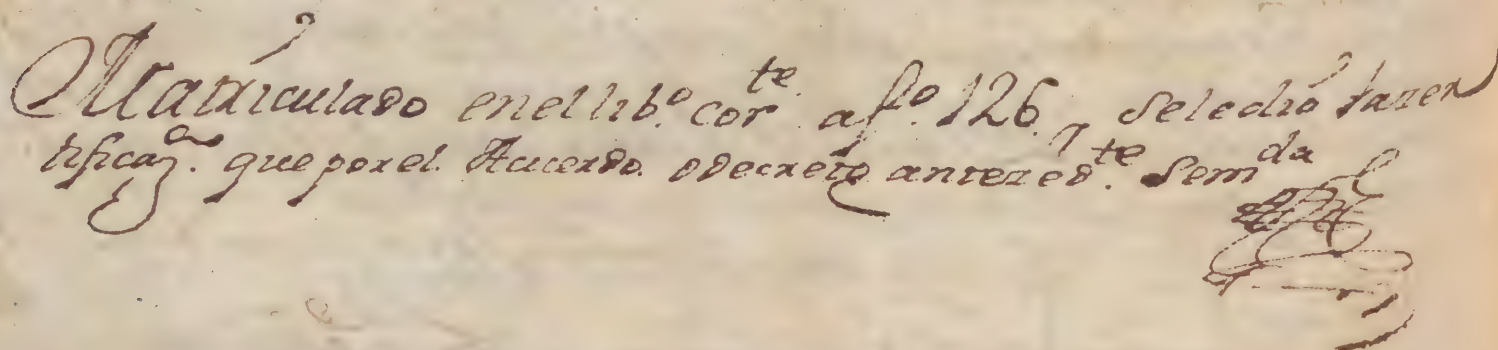 Matriculado en el lib.º cor.te a fº. 126., y Se le dió la zer
tificaz.on que por el Acuerdo o decreto antezed.te Sem.da